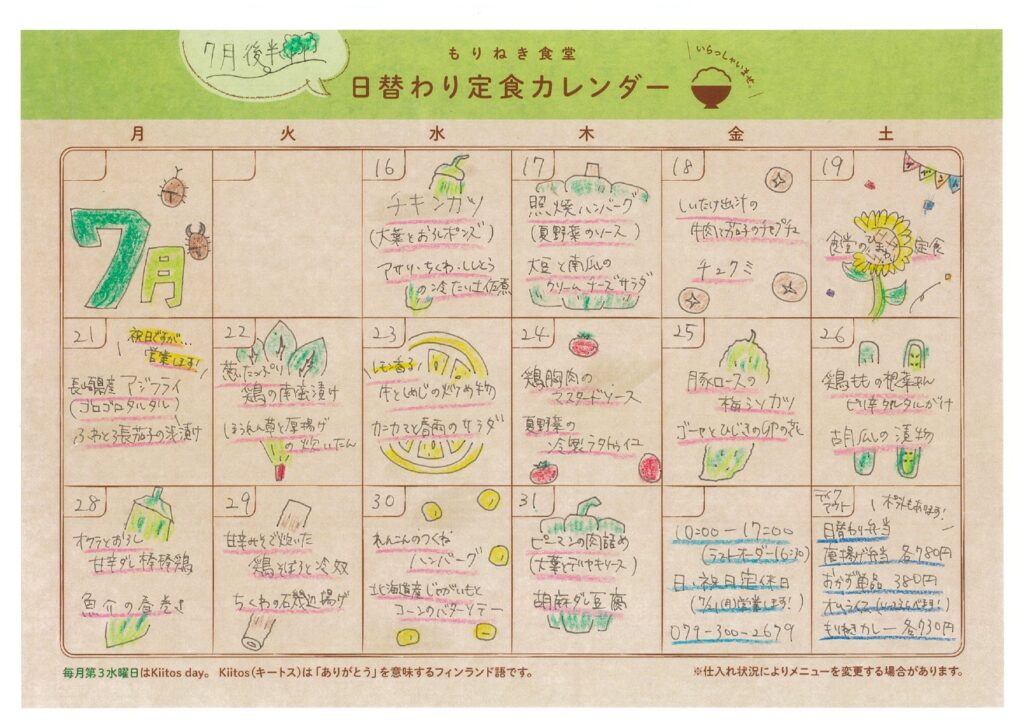 7月後半
もりねき食堂
日替わり定食カレンダー
いらっしゃいませ。
月 火 水 木 金 土
7月
16
チキンカツ
(大葉とおろしポンズ)
アサリ・ちくわ・ししとう
の冷たい佃煮
17
照焼ハンバーグ
(夏野菜のソース)
大豆と南瓜の
クリームチーズサラダ
18
しいたけ出汁の
牛肉と茄子のチャプチェ
チュクミ
19
イベント
食堂のひまわり定食
21
祝日ですが…
営業します!
長崎県産アジフライ
(ゴロゴロタルタル)
ふわとろ長茄子の浅漬け
22
葱たっぷり
鶏の南蛮漬け
ほうれん草と厚揚げ
の炊いたん
23
レモン香る
牛としめじの炒め物
カニカマと春雨のサラダ
24
鶏胸肉の
マスタードソース
夏野菜の
冷製ラタトゥイユ
25
豚ロースの
梅シソカツ
ゴーヤとひじきの卯の花
26
鶏ももの根菜あん
ピリ辛タルタルがけ
胡瓜の漬物
28
オクラとおろし
甘辛ダレ棒棒鶏
魚介の春巻き
29
甘辛みそで炊いた
鶏そぼろと冷奴
ちくわの石垣辺揚げ
30
れんこんのつくね
ハンバーグ
北海道産じゃがいもと
コーンのバターソテー
31
ピーマンの肉詰め
(大葉とテリヤキソース)
胡麻ダレ豆腐
10:00-17:00
(ラストオーダー16:30)
日、祝日定休日
(7/21(月)営業します!)
079-300-2679
テイクアウト
ボ外もあります!
日替わり弁当
唐揚げ弁当 各780円
おかず単品 380円
オムライス
もりねきカレー 各730円
毎月第3水曜日はKiitos day。 Kiitos(キートス)は「ありがとう」を意味するフィンランド語です。
※仕入れ状況によりメニューを変更する場合があります。